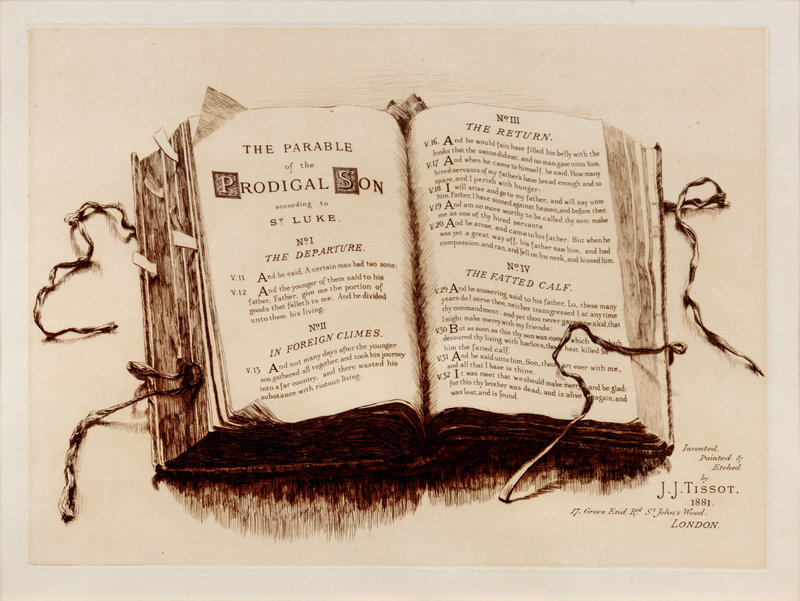 THE PARABLE
of the
PRODIGAL SON
according to
ST LUKE.
No I
THE DEPARTURE.
V.11 And he said, A certain man had two sons:
V.12 And the younger of them said to his
father, Father, give me the portion of
goods that falleth to me. And he divided
unto them his living.
No II
IN FOREIGN CLIMES.
V.13 And not many days after the younger
son gathered all together, and took his journey
into a far country, and there wasted his
substance with riotous living.
No III
THE RETURN.
V.16. And he would fain have filled his belly with the
husks that the swine did eat: and no man gave unto him.
V.17 And when he came to himself, he said, How many
hired servants of my father's have bread enough and to
spare, and I perish with hunger:
V.18 I will arise and go to my father, and will say unto
him, Father, I have sinned against heaven, and before thee.
V.19 And am no more worthy to be called thy son: make
me as one of thy hired servants.
V.20 And he arose, and came to his father. But when he
was yet a great way off, his father saw him, and had
compassion, and ran, and fell on his neck, and kissed him.
No IV
THE FATTED CALF.
V.29 And he answering said to his father, Lo, these many
years do I serve thee, neither transgressed I at any time
thy commandment: and yet thou never gave me a kid, that
I might make merry with my friends:
V.30 But as soon as this thy son was come, which
devoured thy living with harlots, thou hast killed for
him the fatted calf.
V.31 And he said unto him, Son, thou art ever with me,
and all that I have is thine.
V.32 It was meet that we should make merry and be glad:
for this thy brother was dead, and is alive again; and
was lost, and is found
Invented,
Painted &
Etched
by
J.J.TISSOT,
1881.
17. Grove End Rd St John's Wood.
LONDON.